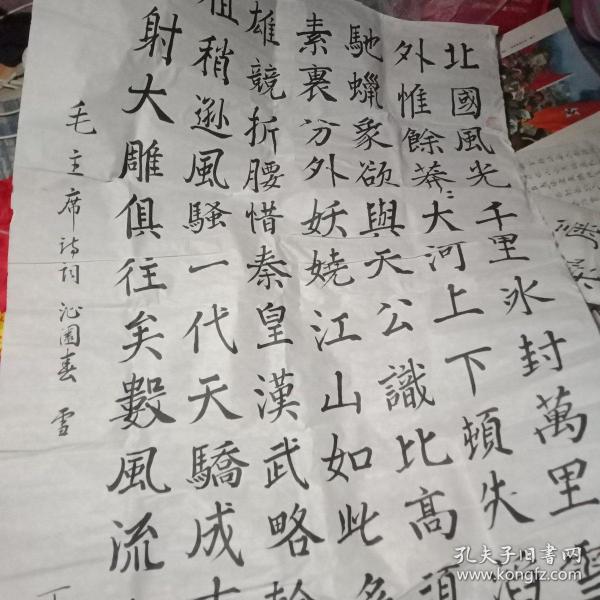 北國風光千里冰封萬里雪
外惟餘莽〻大河上下頓失滔
馳蠟象欲與天公識比高須
素裹分外妖嬈江山如此多
雄競折腰惜秦皇漢武略輸
祖稍遜風騷一代天驕成吉
射大雕俱往矣數風流
毛主席詩词 沁園春 雪
孔夫子旧书网
www.kongfz.com